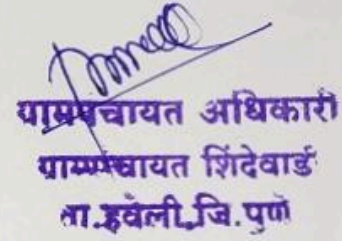 ग्रामपंचायत अधिकारी
ग्रामपंचायत शिंदेवाडी
ता.हवेली,जि.पुणे